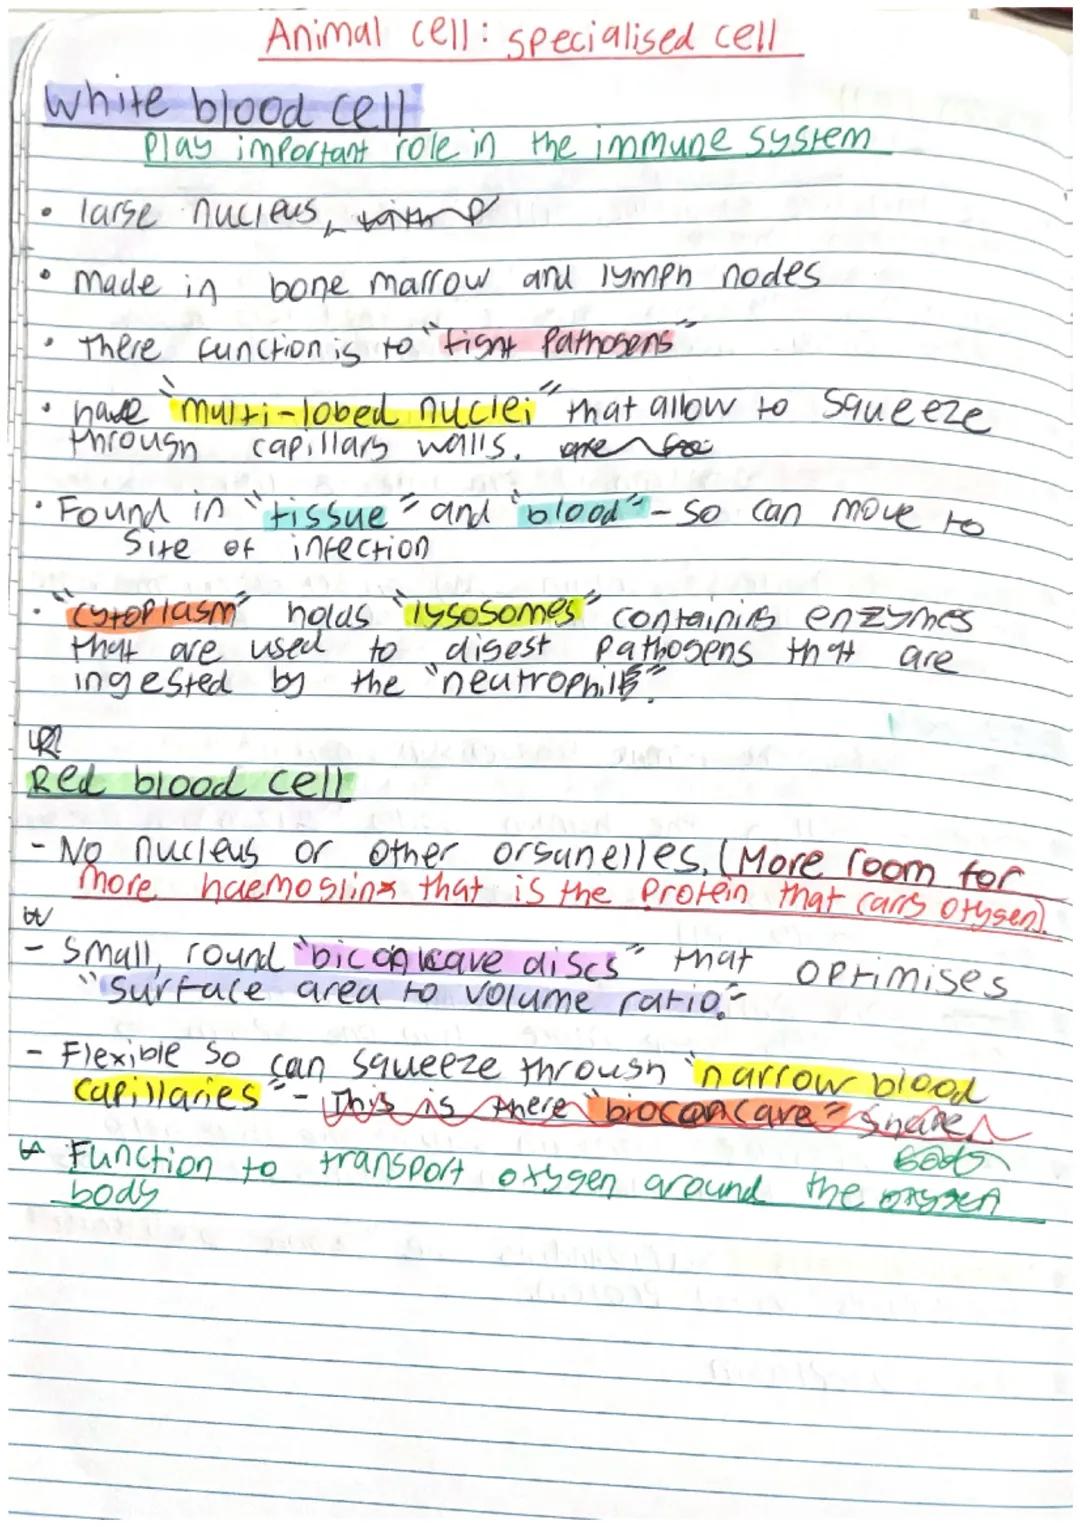 Animal cell: specialised cell
White blood cell
Play important role in the immune system
• large nucleus,
• made in bone marrow and lymph nodes
• there function is to "fight Pathogens"
• have "multi-lobed nuclei" that allow to squeeze
through capillary walls.
• Found in "tissue" and "blood" - so can move to
site of infection
• "cytoplasm" holds "lysosomes" containing enzymes
that are used to digest Pathogens that are
ingested by the "neutrophils".
Red blood cell
- No nucleus or other organelles. (More room for
more haemoglin that is the Protein that carry oxygen).
- Small, round "biconcave discs" that optimises
"surface area to volume ratio."
- Flexible so can squeeze through "narrow blood
capillaries" - This is there "bioconcave" shape
body
Function to transport oxygen around the oxygen
body